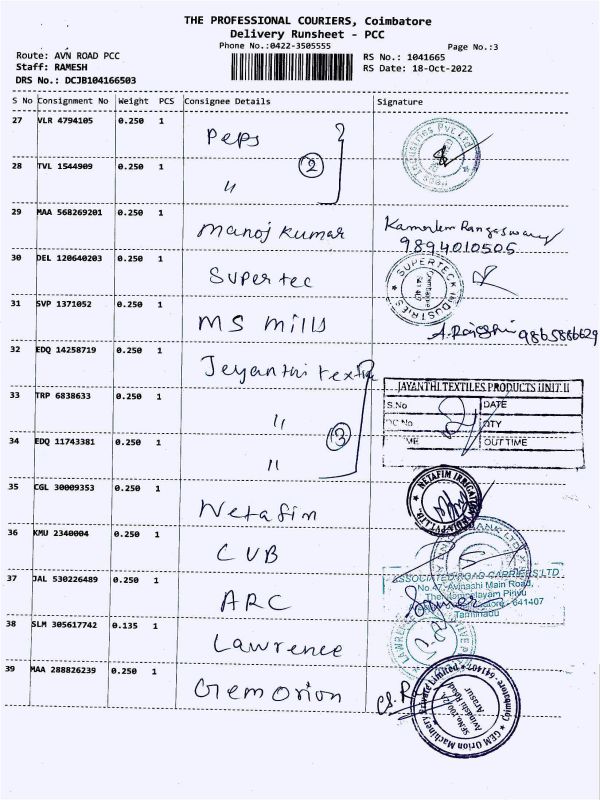 THE PROFESSIONAL COURIERS, Coimbatore
Delivery Runsheet - PCC
Phone No.:0422-3505555
Page No.:3
Route: AVN ROAD PCC
RS No.: 1041665
Staff: RAMESH
RS Date: 18-Oct-2022
DRS No.: DCJB104166503
S No Consignment No Weight PCS Consignee Details Signature
27 VLR 4794105 0.250 1 Peps
28 TVL 1544909 0.250 1 "
2
29 MAA 568269201 0.250 1 Manoj Kumar
9894010505
30 DEL 120640203 0.250 1 Supertec
SUPERTECK INDUSTRIES
31 SVP 1371052 0.250 1 MS Mills
9865886629
32 EDQ 14258719 0.250 1 Jeyanthi textile
33 TRP 6838633 0.250 1 "
34 EDQ 11743381 0.250 1 "
3
JAYANTHI TEXTILES PRODUCTS UNIT II
S.No DATE
QTY
OUT TIME
35 CGL 30009353 0.250 1 Netafim
NETAFIM IRRIGATION INDIA PVT.LTD.
36 KMU 2340004 0.250 1 CUB
37 JAL 530226489 0.250 1 ARC
ASSOCIATED ROAD CARRIERS LTD
No.47, Avinashi Main Road,
641407
Tamilnadu
38 SLM 305617742 0.135 1 Lawrence
LAWRENCE
39 MAA 288826239 0.250 1 Gem Orion
GEM Orion Machinery Private Limited
Avinashi Road
Arasur
Coimbatore-641407